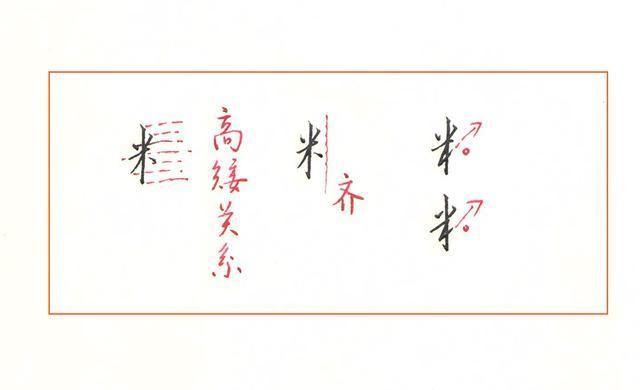 米
高矮关系
米
齐
米
米